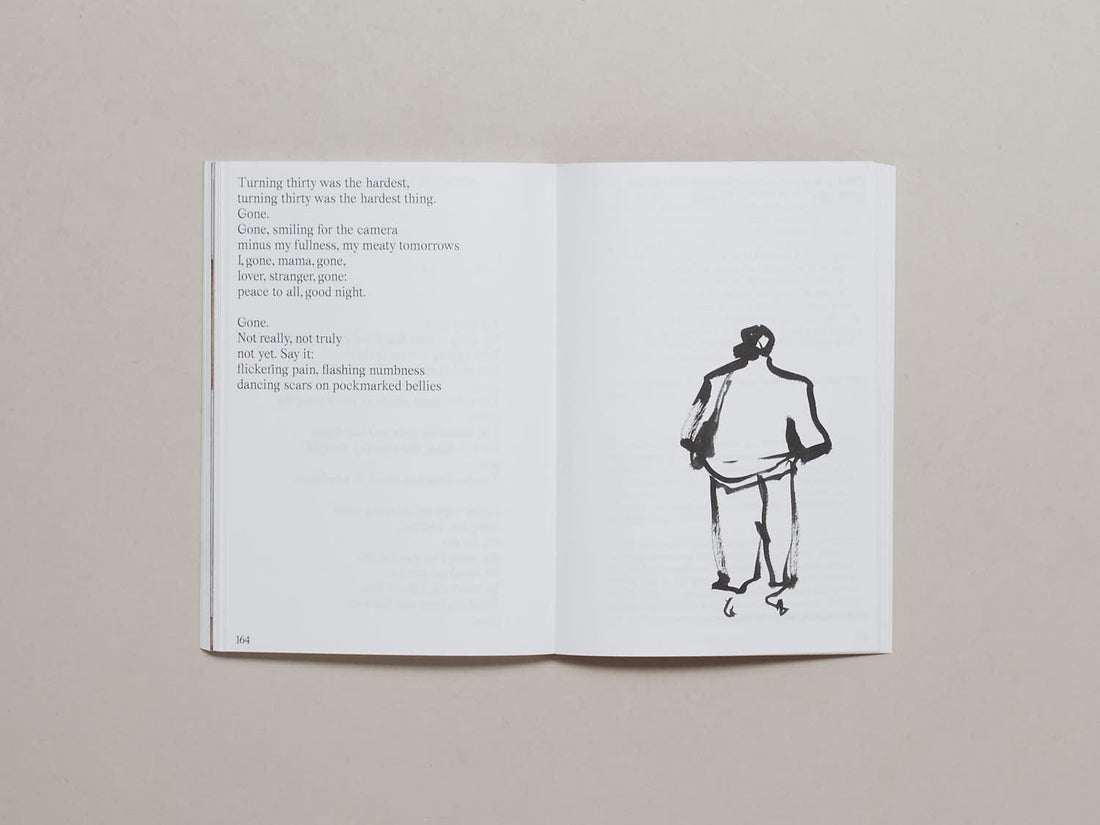 Turning thirty was the hardest,
turning thirty was the hardest thing.
Gone.
Gone, smiling for the camera
minus my fullness, my meaty tomorrows
I, gone, mama, gone,
lover, stranger, gone:
peace to all, good night.
Gone.
Not really, not truly
not yet. Say it:
flickering pain, flashing numbness
dancing scars on pockmarked bellies
164